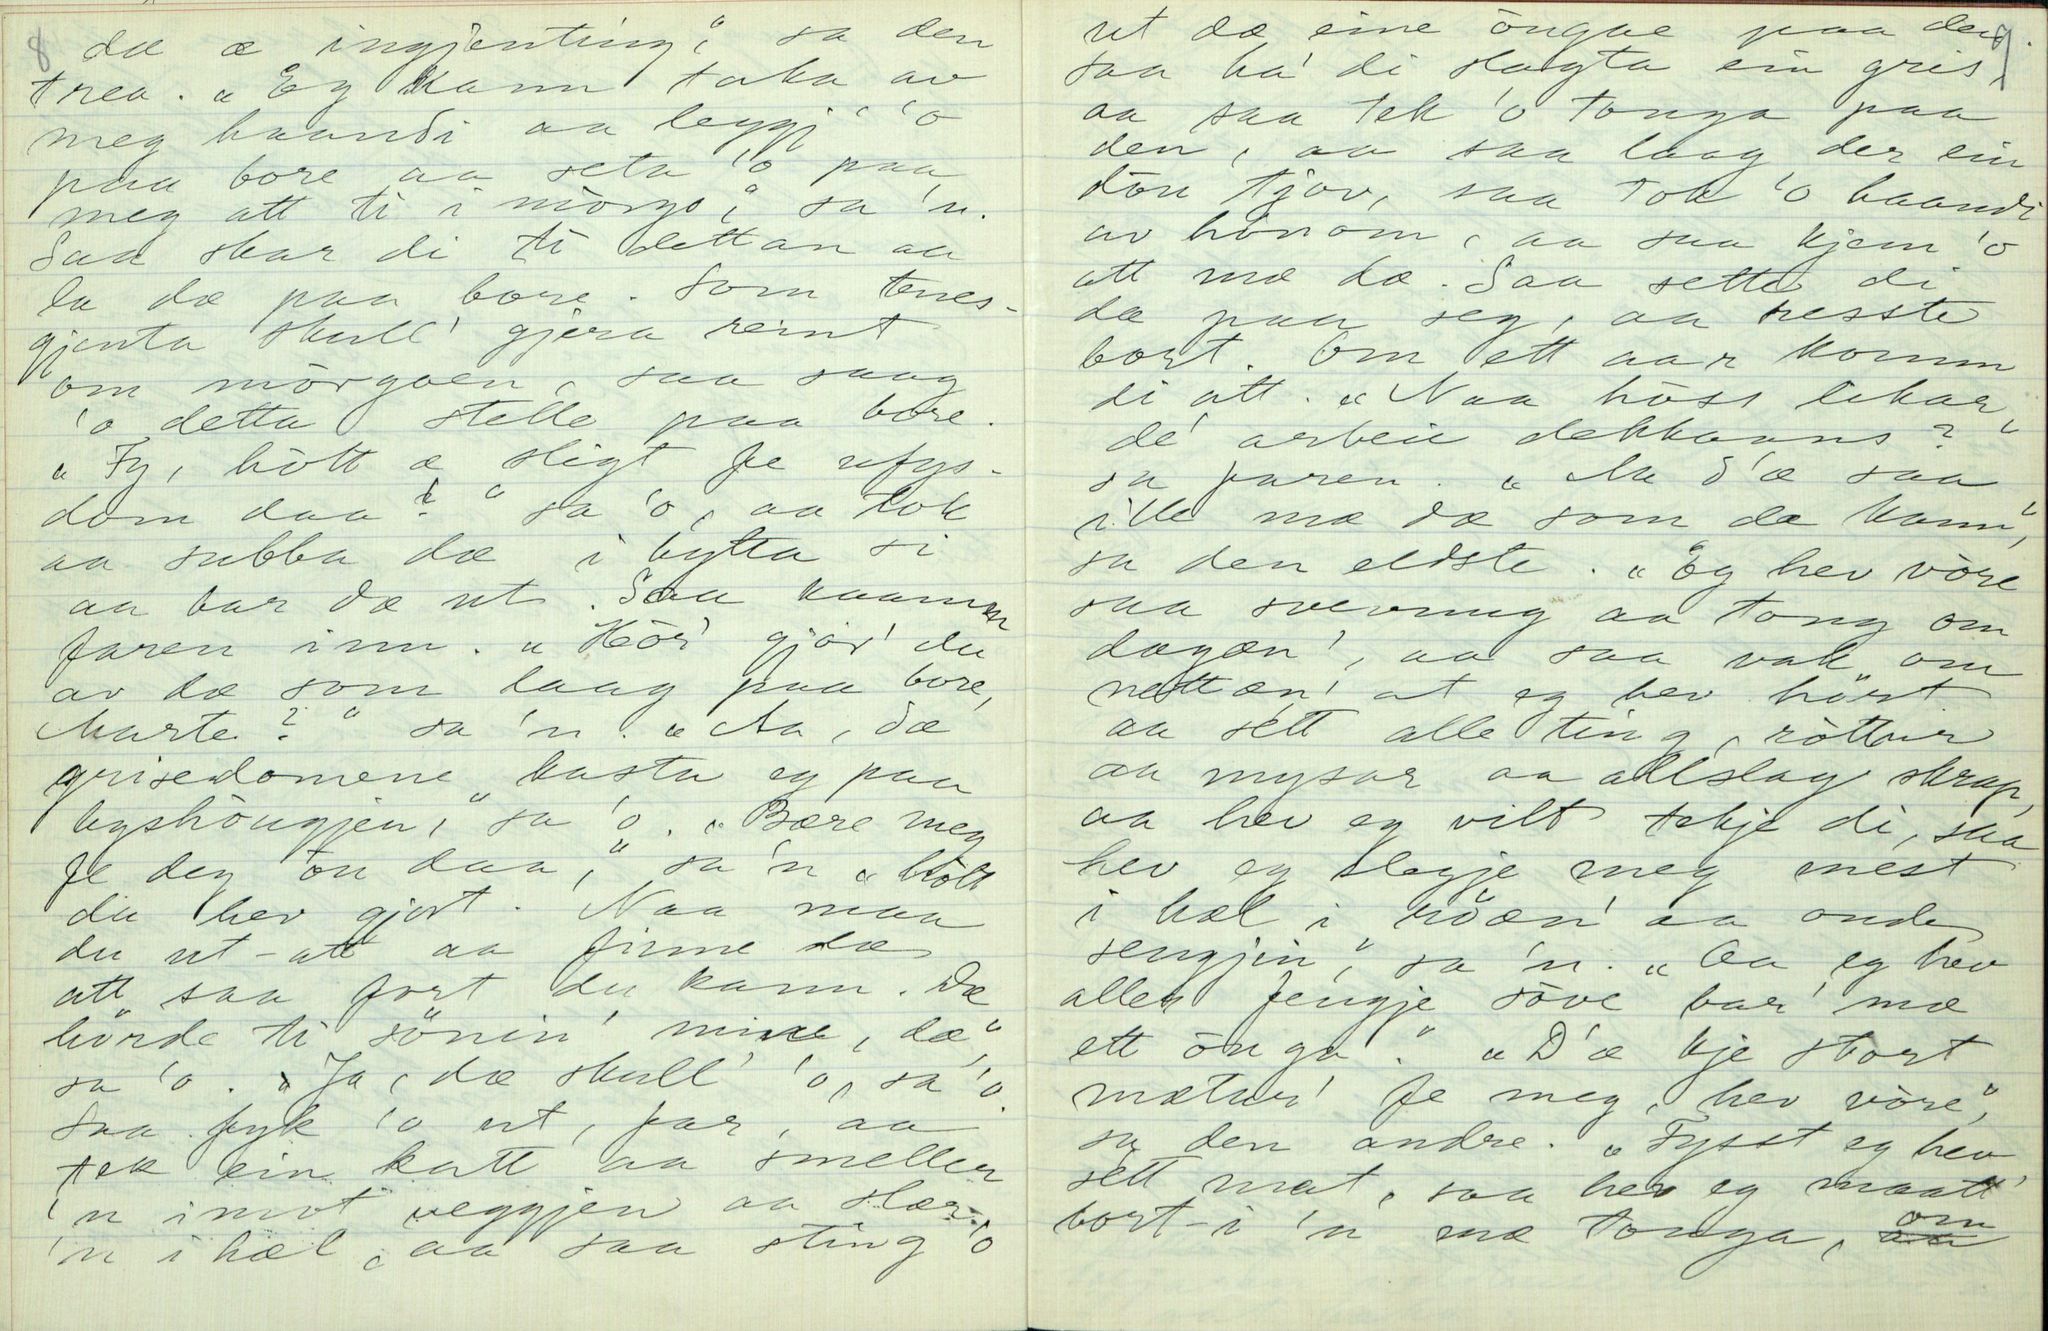 8
da æ ingjenting," sa den
trea. "Eg kann taka av
meg haandi aa leggj' 'o
paa bore aa seta 'o paa
meg att ti i mörgo," sa 'n.
Saa skar di ti dettan aa
la dæ paa bore. Som tenes-
gjenta skull' gjera reint
om mörgoen, saa saag
'o detta stelle paa bore.
"Fy, hött æ sligt fe ufys-
dom daa?" sa 'o, aa tok
aa subba dæ i bytta si
aa bar dæ ut. Saa kaamm
faren inn. "Hör gjor' du
av dæ som laag paa bore,
Marte?" sa 'n. "Aa, dæ
grisedomene kasta eg paa
byshöugjen," sa 'o. "Bære meg
fe deg ön daa," sa 'n "hött
du hev gjort. Naa maa
du ut-att aa finne dæ
att saa fort du kann. Dæ
hörde ti sönin' mine, dæ",
sa 'o. "Ja, dæ skull' 'o, sa 'o.
Saa fyk 'o ut, far, aa
tek ein katt aa smeller
'n imot veggjen aa slær
'n i hæl, aa saa sting 'o
9
ut dæ eine öugae paa den.
Saa ha' di slagta ein gris,
aa saa tek 'o tonga paa
den, aa saa laag der ein
dön tjov, saa tok 'o haandi
av hönom, aa saa kjem 'o
att mæ dæ. Saa sette di
dæ paa seg, aa resste
bort. Om ett aar komm
di att. "Naa höss likar
de' arbeie dekkaans?"
sa faren. "Aa d'æ saa
ille mæ dæ som dæ kann",
sa den eldste. "Eg hev vöre
saa svevnug aa tong om
dagæn', aa saa vak om
nettæn' at eg hev hört
aa sett alle ting, röttur
aa mysar aa allslag skrap,
aa hev eg vilt tekje di, saa
hev eg slegje meg mest
i hæl i röæn' aa onde
sengjin", sa 'n. "Aa eg hev
aller fengje söve bar' mæ
ett öuga." "D'æ kje stort
mætur' fe meg, hev vöre",
sa den andre. "Fysst eg hev
sett mat, saa hev eg maatt'
bort-i 'n mæ tonga, om